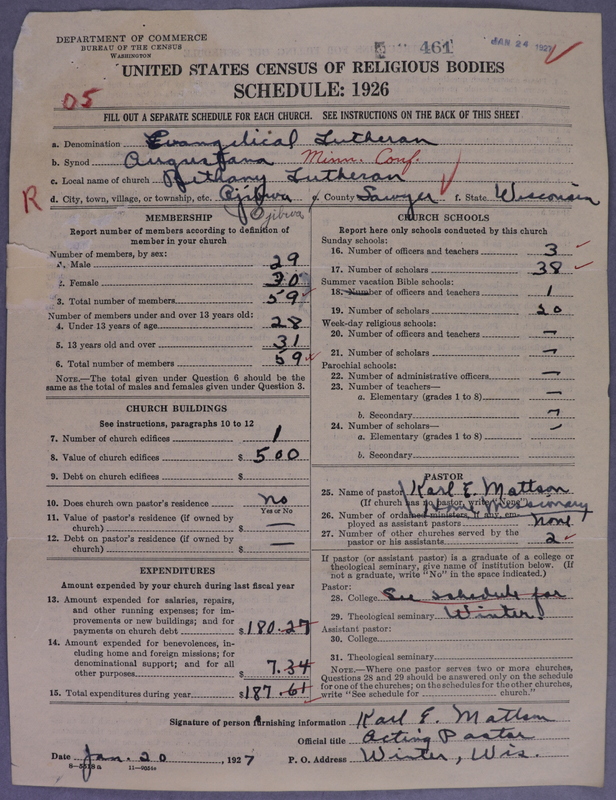 DEPARTMENT OF COMMERCE
BUREAU OF THE CENSUS
WASHINGTON
461
JAN 24 1927
UNITED STATES CENSUS OF RELIGIOUS BODIES
SCHEDULE: 1926
05
FILL OUT A SEPARATE SCHEDULE FOR EACH CHURCH. SEE INSTRUCTIONS ON THE BACK OF THIS SHEET
a. Denomination Evangelical Lutheran
b. Synod Augustana Minn. Conf.
c. Local name of church Bethany Lutheran
R d. City, town, village, or township, etc. Ojibwa e. County Sawyer f. State Wisconsin
Ojibwa
MEMBERSHIP
Report number of members according to definition of member in your church
Number of members, by sex:
1. Male 29
2. Female 30
3. Total number of members 59
Number of members under and over 13 years old:
4. Under 13 years of age 28
5. 13 years old and over 31
6. Total number of members 59
NOTE.—The total given under Question 6 should be the
same as the total of males and females given under Question 3.
CHURCH BUILDINGS
See instructions, paragraphs 10 to 12
7. Number of church edifices 1
8. Value of church edifices $ 500
9. Debt on church edifices $
10. Does church own pastor's residence No
Yes or No
11. Value of pastor's residence (if owned by
church) $ —
12. Debt on pastor's residence (if owned by
church) $ —
EXPENDITURES
Amount expended by your church during last fiscal year
13. Amount expended for salaries, repairs,
and other running expenses; for im-
provements or new buildings; and for
payments on church debt $ 180.27
14. Amount expended for benevolences, in-
cluding home and foreign missions; for
denominational support; and for all
other purposes $ 7.34
15. Total expenditures during year $ 187.61
CHURCH SCHOOLS
Report here only schools conducted by this church
Sunday schools:
16. Number of officers and teachers 3
17. Number of scholars 38
Summer vacation Bible schools:
18. Number of officers and teachers 1
19. Number of scholars 20
Week-day religious schools:
20. Number of officers and teachers —
21. Number of scholars —
Parochial schools:
22. Number of administrative officers —
23. Number of teachers—
a. Elementary (grades 1 to 8) —
b. Secondary —
24. Number of scholars—
a. Elementary (grades 1 to 8) —
b. Secondary
PASTOR
25. Name of pastor Karl E. Mattson
(If church has no pastor, write "None")
Home Missionary
26. Number of ordained ministers, if any, em-
ployed as assistant pastors None
27. Number of other churches served by the
pastor or his assistants 2
If pastor (or assistant pastor) is a graduate of a college or
theological seminary, give name of institution below. (If
not a graduate, write "No" in the space indicated.)
Pastor:
28. College See schedule for
29. Theological seminary Winter.
Assistant pastor:
30. College
31. Theological seminary
NOTE.—Where one pastor serves two or more churches,
Questions 28 and 29 should be answered only on the schedule
for one of the churches; on the schedules for the other churches,
write "See schedule for church."
Signature of person furnishing information Karl E. Mattson
Official title Acting Pastor
Date Jan. 20, 1927 P. O. Address Winter, Wis.
8—5518 a 11—9054a